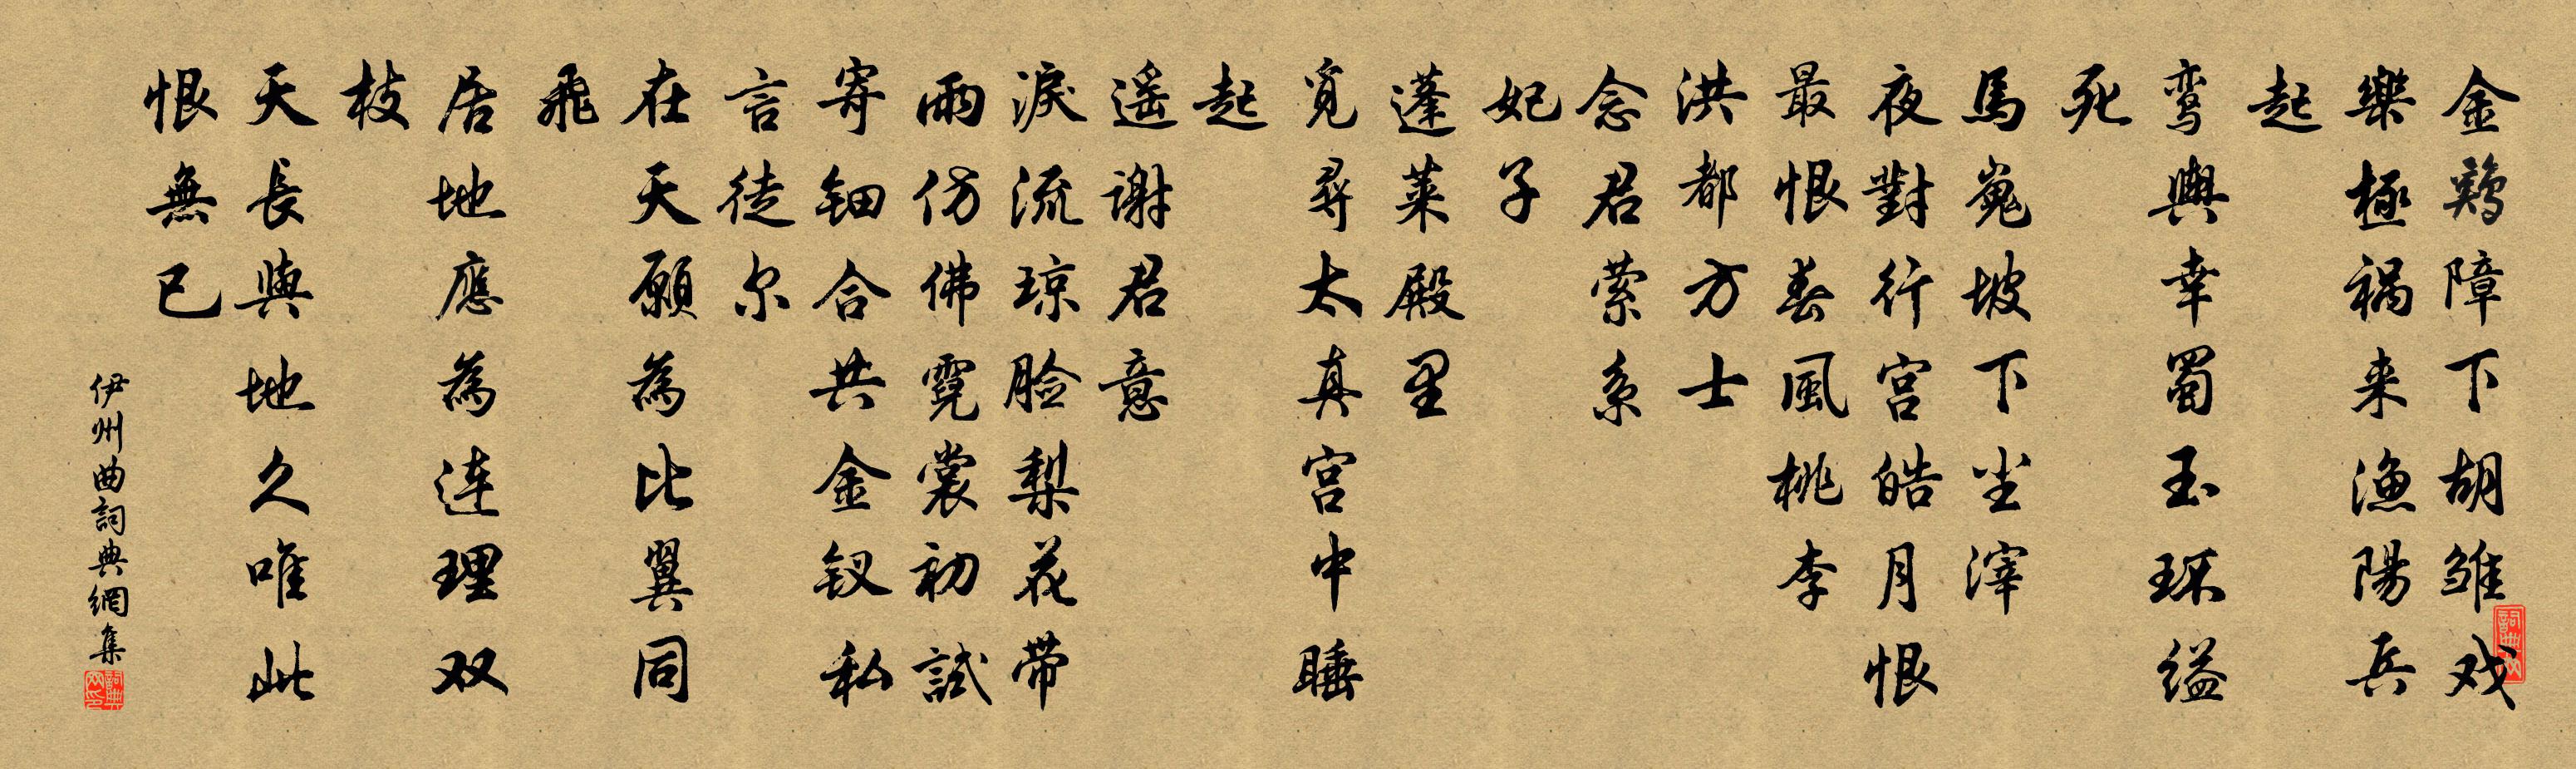 金鷄障下胡雏戏
樂極祸来渔陽兵
起
鸾輿幸蜀玉环缢
死
馬嵬坡下尘滓
夜對行宫皓月恨
最恨春風桃李
洪都方士
念君萦系
妃子
蓬莱殿里
覓尋太真宫中睡
起
遥谢君意
淚流琼脸梨花带
雨仿佛霓裳初試
寄钿合共金钗私
言徒尔
在天願為比翼同
飛
居地應為连理双
枝
天長與地久唯此
恨無已
伊州曲詞典網集